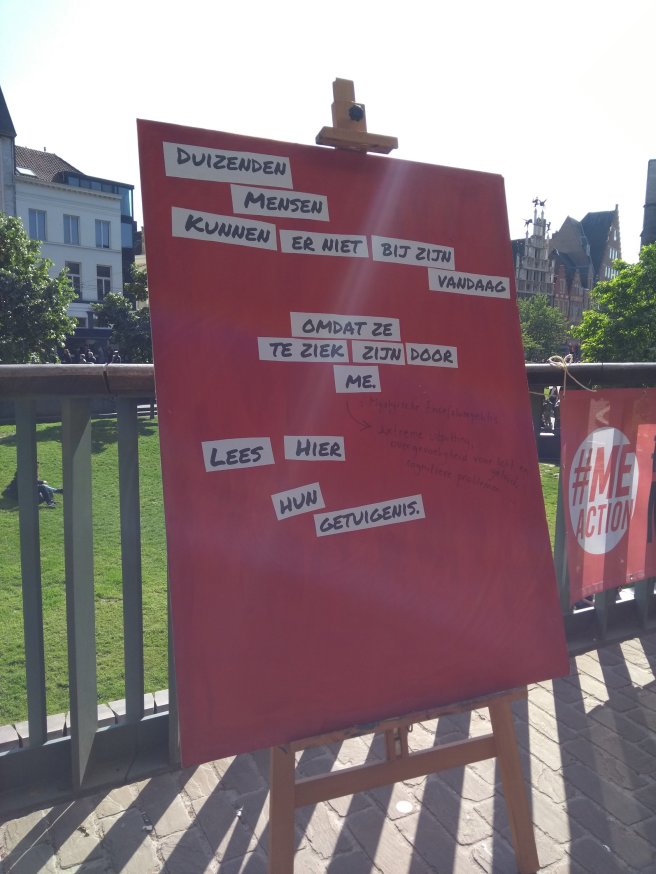 DUIZENDEN
MENSEN
KUNNEN ER NIET BIJ ZIJN
VANDAAG
OMDAT ZE
TE ZIEK ZIJN DOOR
ME.
: Myalgische Encefalomyelitis
→ extreme uitputting,
overgevoeligheid voor licht en
geluid,
cognitieve problemen
LEES HIER
HUN
GETUIGENIS.
#ME
ACTION